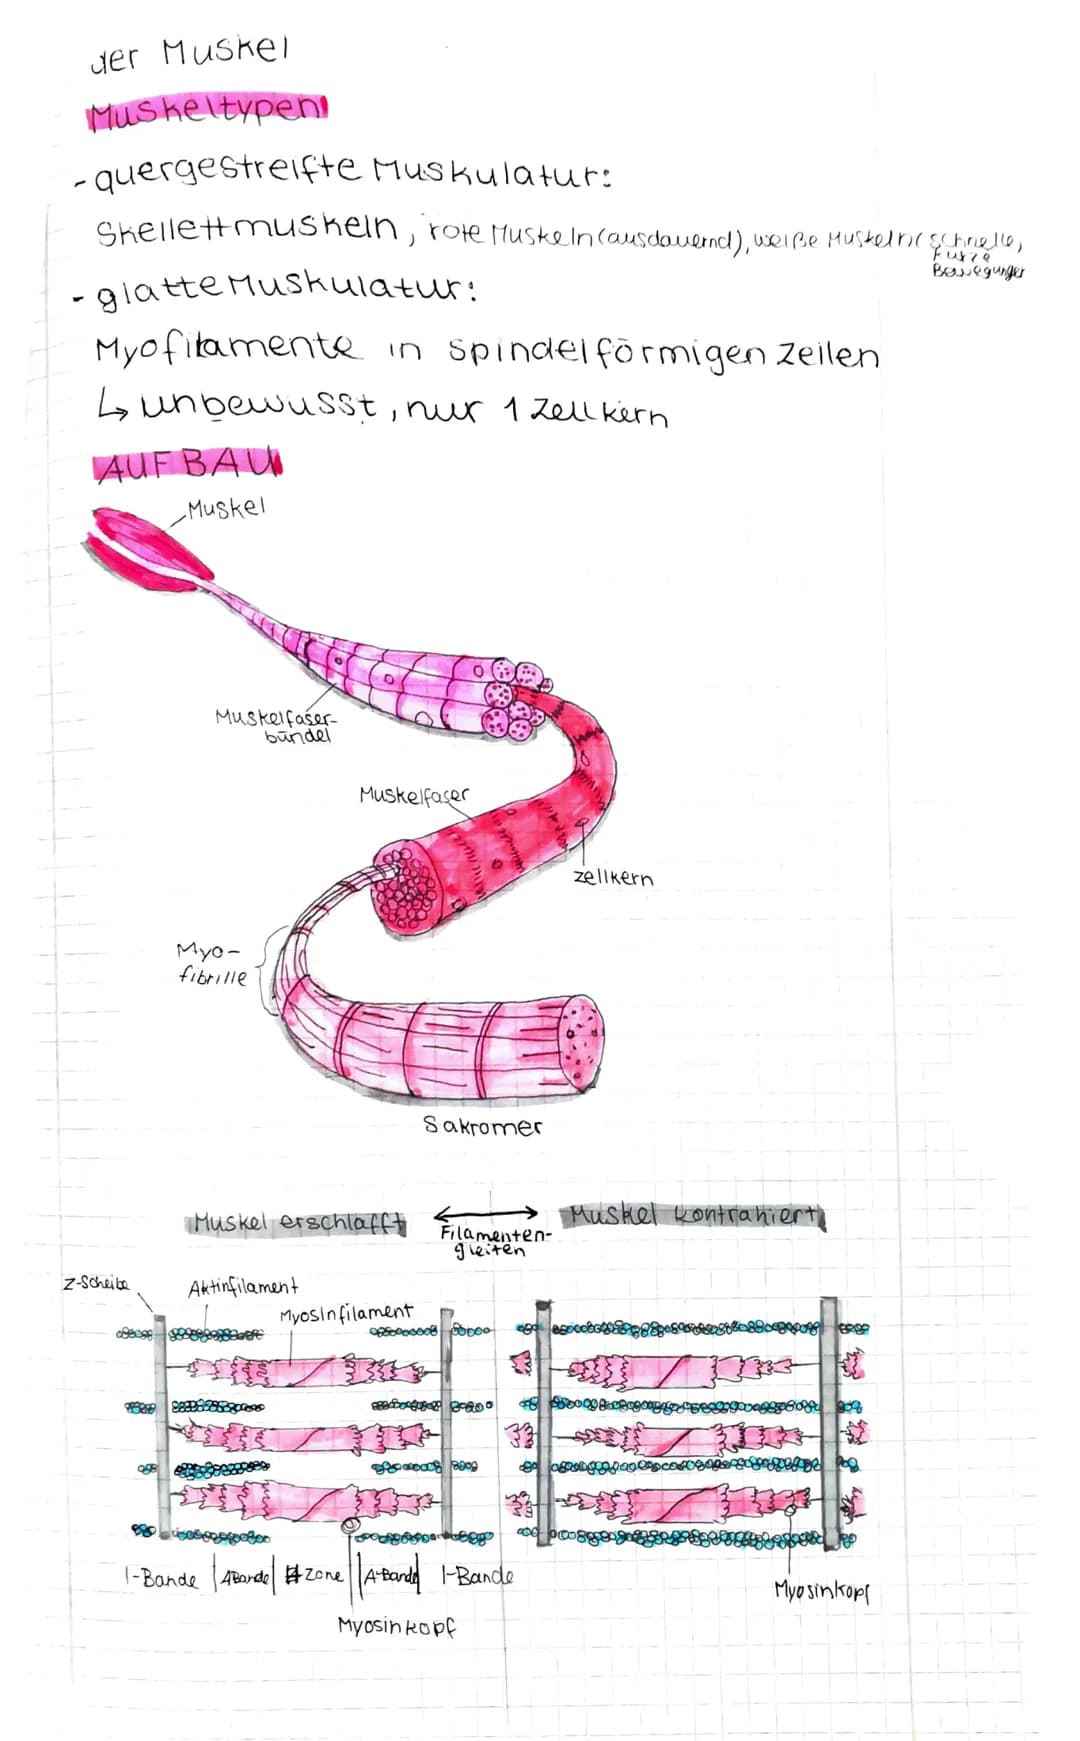 der Muskel
Muskeltypen
- quergestreifte Muskulatur:
Skellettmuskeln, rote Muskeln (ausdauernd), weiße Muskeln (schnelle,
kurze
Bewegungen
- glatte Muskulatur:
Myofilamente in spindelförmigen Zellen
↳ unbewusst, nur 1 Zellkern
AUFBAU
Muskel
Muskelfaser-
bündel
Muskelfaser
Zellkern
Myo-
fibrille
Sakromer
Muskel erschlafft ↔ Muskel kontrahiert
Filamenten-
gleiten
Z-Scheibe
Aktinfilament
Myosinfilament
I-Bande | A Bande | H Zone | A-Bande | I-Bande
Myosinkopf
Myosinkopf